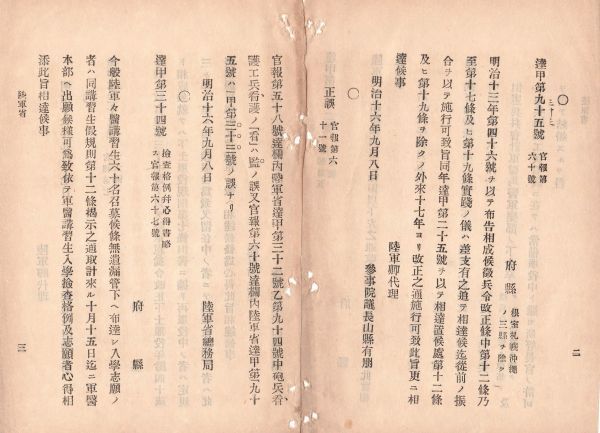 二
〇
達甲第九十五號 官報第六十號
三十三
府縣 根室札幌沖縄ノ三縣ヲ除ク
明治十三年第四十六號ヲ以テ布告相成候徵兵令改正條中第十二條乃
至第十七條及ヒ第十九條實踐ノ儀ハ差支有之迠ヲ相達候迄從前ノ振
合ヲ以テ施行可致旨同年達甲第二十五號ヲ以テ相達置候處第十二條
及ヒ第十九條ヲ除クノ外來十七年ヨリ改正之通施行可致此旨更ニ相
達候事
陸軍卿代理
參事院議長山縣有朋
明治十六年九月八日
〇
正誤 官報第六十一號
官報第五十八號達欄內陸軍省達甲第三十二號乙第九十四號中砲兵看
護工兵看護ノ「看」ハ監ノ誤又官報第六十號達欄內陸軍省達甲第九十
五號ハ「甲第三十三號」ノ誤ナリ
明治十六年九月八日 陸軍省總務局
〇
達甲第三十四號 檢查格例幷心得書略ス官報第六十七號
府縣
今般陸軍々醫講習生六十名召募候條無遺漏管下ヘ布達シ入學志願ノ
者ハ同講習生假規則第十二條揭示之通取計來ル十月十五日迄ニ軍醫
本部ヘ出願候樣可爲致依テ軍醫講習生入學檢查格例及志願者心得相
添此旨相達候事
陸軍省
三